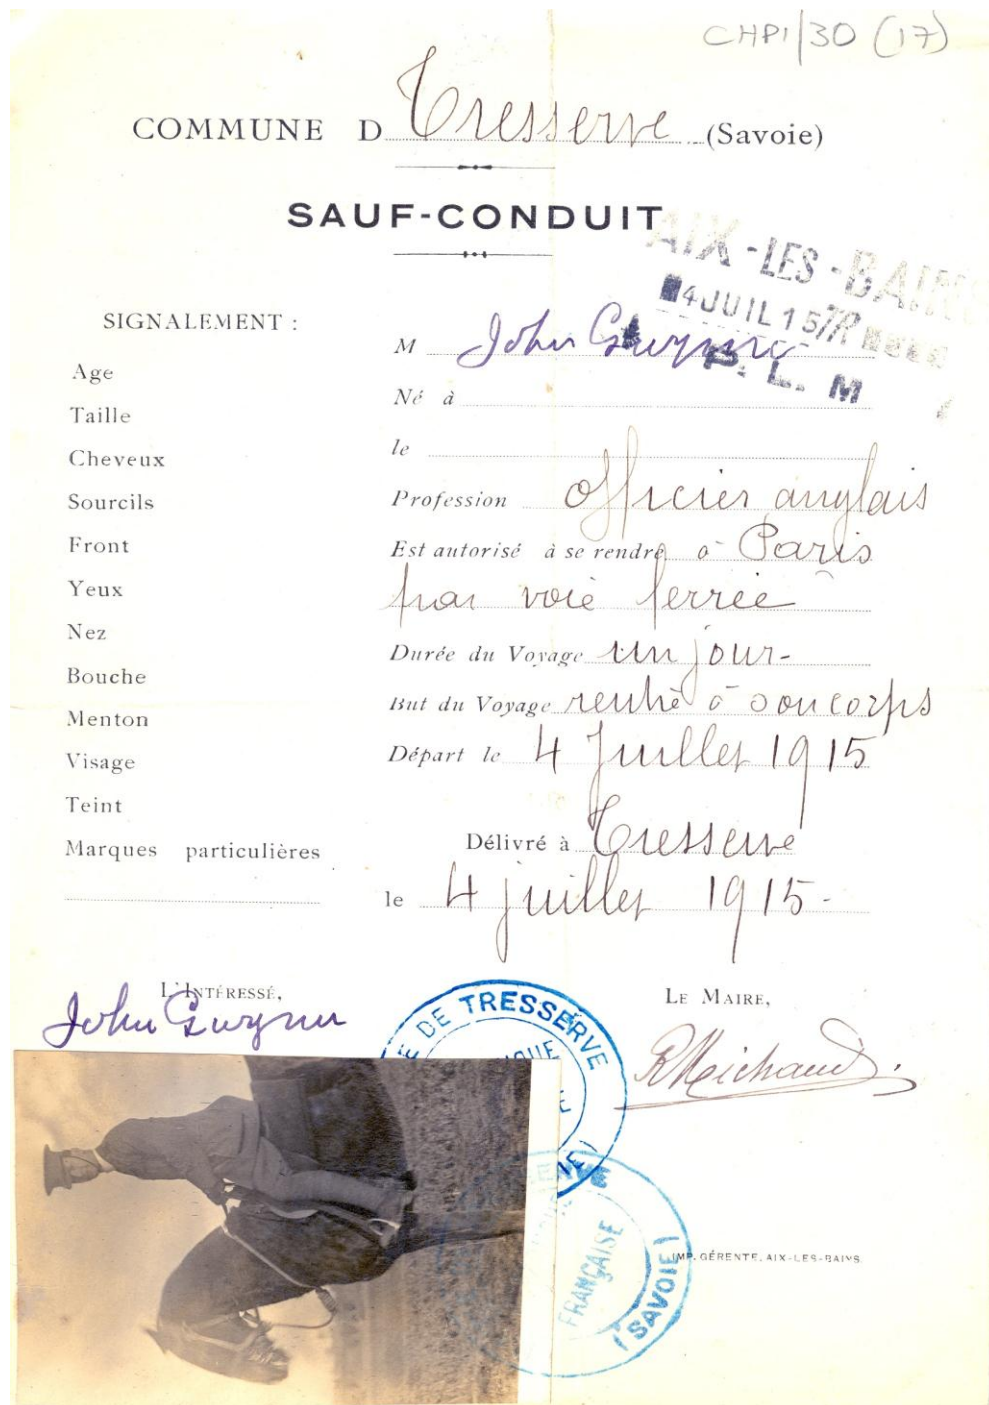 CHP1/30 (17)
COMMUNE D Tresserve (Savoie)
SAUF-CONDUIT
AIX-LES-BAINS
4 JUIL 15
P. L. M
SIGNALEMENT :
Age
Taille
Cheveux
Sourcils
Front
Yeux
Nez
Bouche
Menton
Visage
Teint
Marques particulières
M John Gwynne
Né à
le
Profession officier anglais
Est autorisé à se rendre à Paris
par voie ferrée
Durée du Voyage un jour-
But du Voyage rentré à son corps
Départ le 4 Juillet 1915
Délivré à Tresserve
le 4 juillet 1915-
L'INTÉRESSÉ,
John Gwynne
LE MAIRE,
R Michaud
DE TRESSERVE
FRANÇAISE
(SAVOIE)
IMP. GÉRENTE, AIX-LES-BAINS.